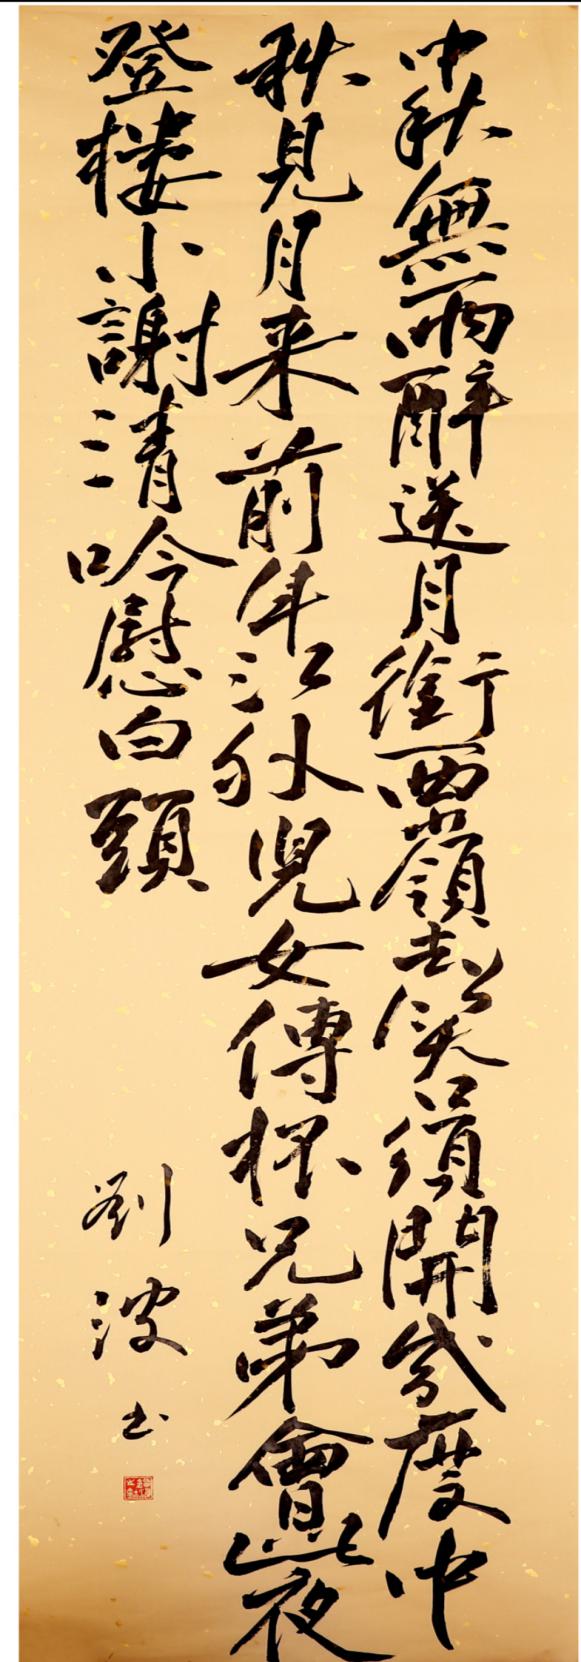 中秋無雨醉送月銜西嶺去笑口須開幾度中
秋見月来前年江外兒女傳杯兄弟會此夜
登楼小謝清吟慰白頭
劉波书